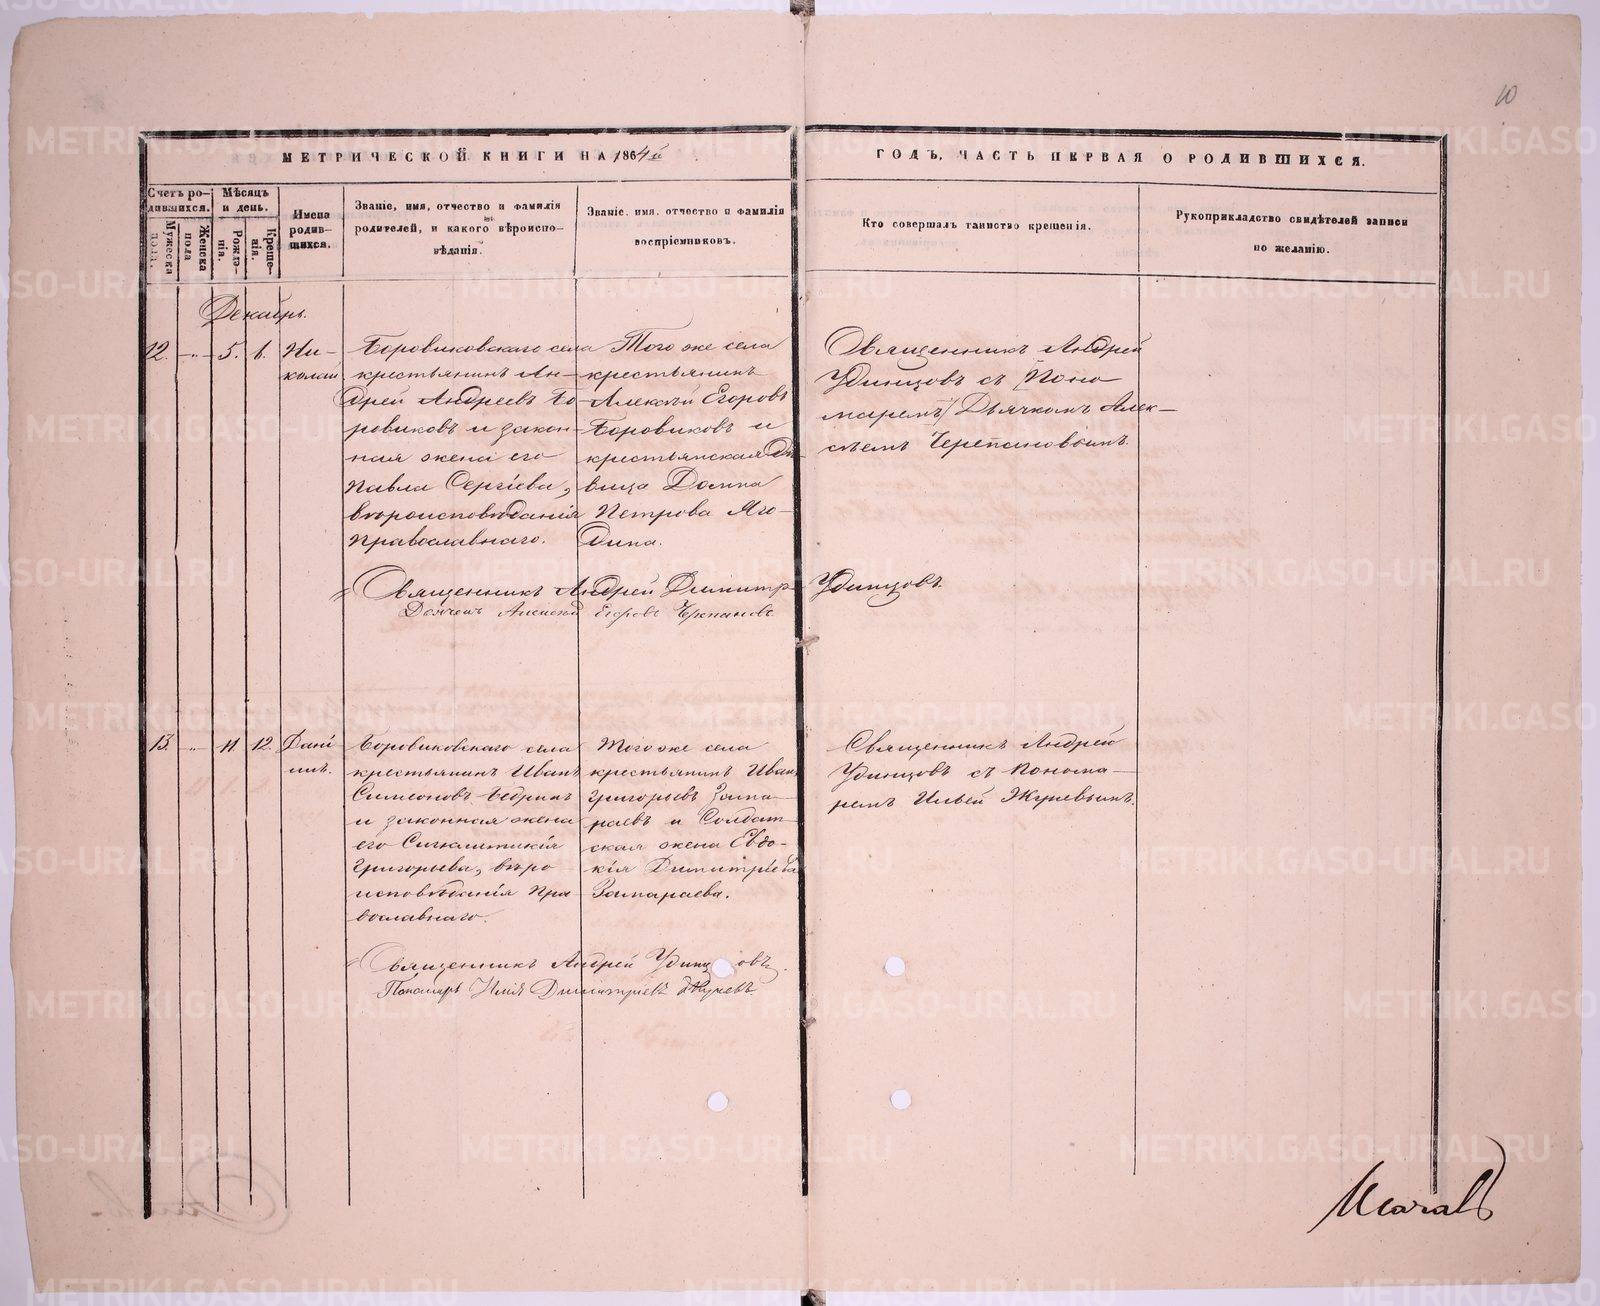 10
МЕТРИЧЕСКОЙ КНИГИ НА 1864й
ГОДЪ, ЧАСТЬ ПЕРВАЯ О РОДИВШИХСЯ.
Счетъ ро-
дившихся.
Мужеска
пола.
Женска
пола
Мѣсяцъ
и день.
Рожде-
нія.
Креще-
нія.
Имена
родив-
шихся.
Званіе, имя, отчество и фамилія
родителей, и какого вѣроиспо-
вѣданія.
Званіе, имя, отчество и фамилія
воспріемниковъ.
Кто совершалъ таинство крещенія.
Рукоприкладство свидѣтелей записи
по желанію.
Декабрь.
12. -"- 5. 6. Ни-
колай
Боровиковскаго села
крестьянинъ Ан-
дрей Андреевъ Бо-
ровиковъ и закон-
ная жена его
Павла Сергіева,
вѣроисповѣданія
православнаго.
Того же села
крестьянинъ
Алексѣй Егоровъ
Боровиковъ и
крестьянская дѣ-
вица Домна
Петрова Яго-
дина.
Священникъ Андрей
Удинцовъ съ Поно-
маремъ Дьячкомъ Алек-
сѣемъ Черепановымъ.
Священникъ Андрей Димитр. Удинцовъ.
Дьячекъ Алексѣй Егоровъ Черепановъ
13. " 11. 12. Дані-
илъ.
Боровиковскаго села
крестьянинъ Иванъ
Симеоновъ
и законная жена
его Сигклитикія
Григорьева, вѣро-
исповѣданія пра-
вославнаго.
Того же села
крестьянинъ Иванъ
Григорьевъ Зама-
раевъ и Солдат-
ская жена Евдо-
кія Димитріева
Замараева.
Священникъ Андрей
Удинцовъ съ понома-
ремъ Ильей Жуневымъ.
Священникъ Андрей Удинцовъ.
Пономарь Илія Димитріевъ
METRIKI.GASO-URAL.RU